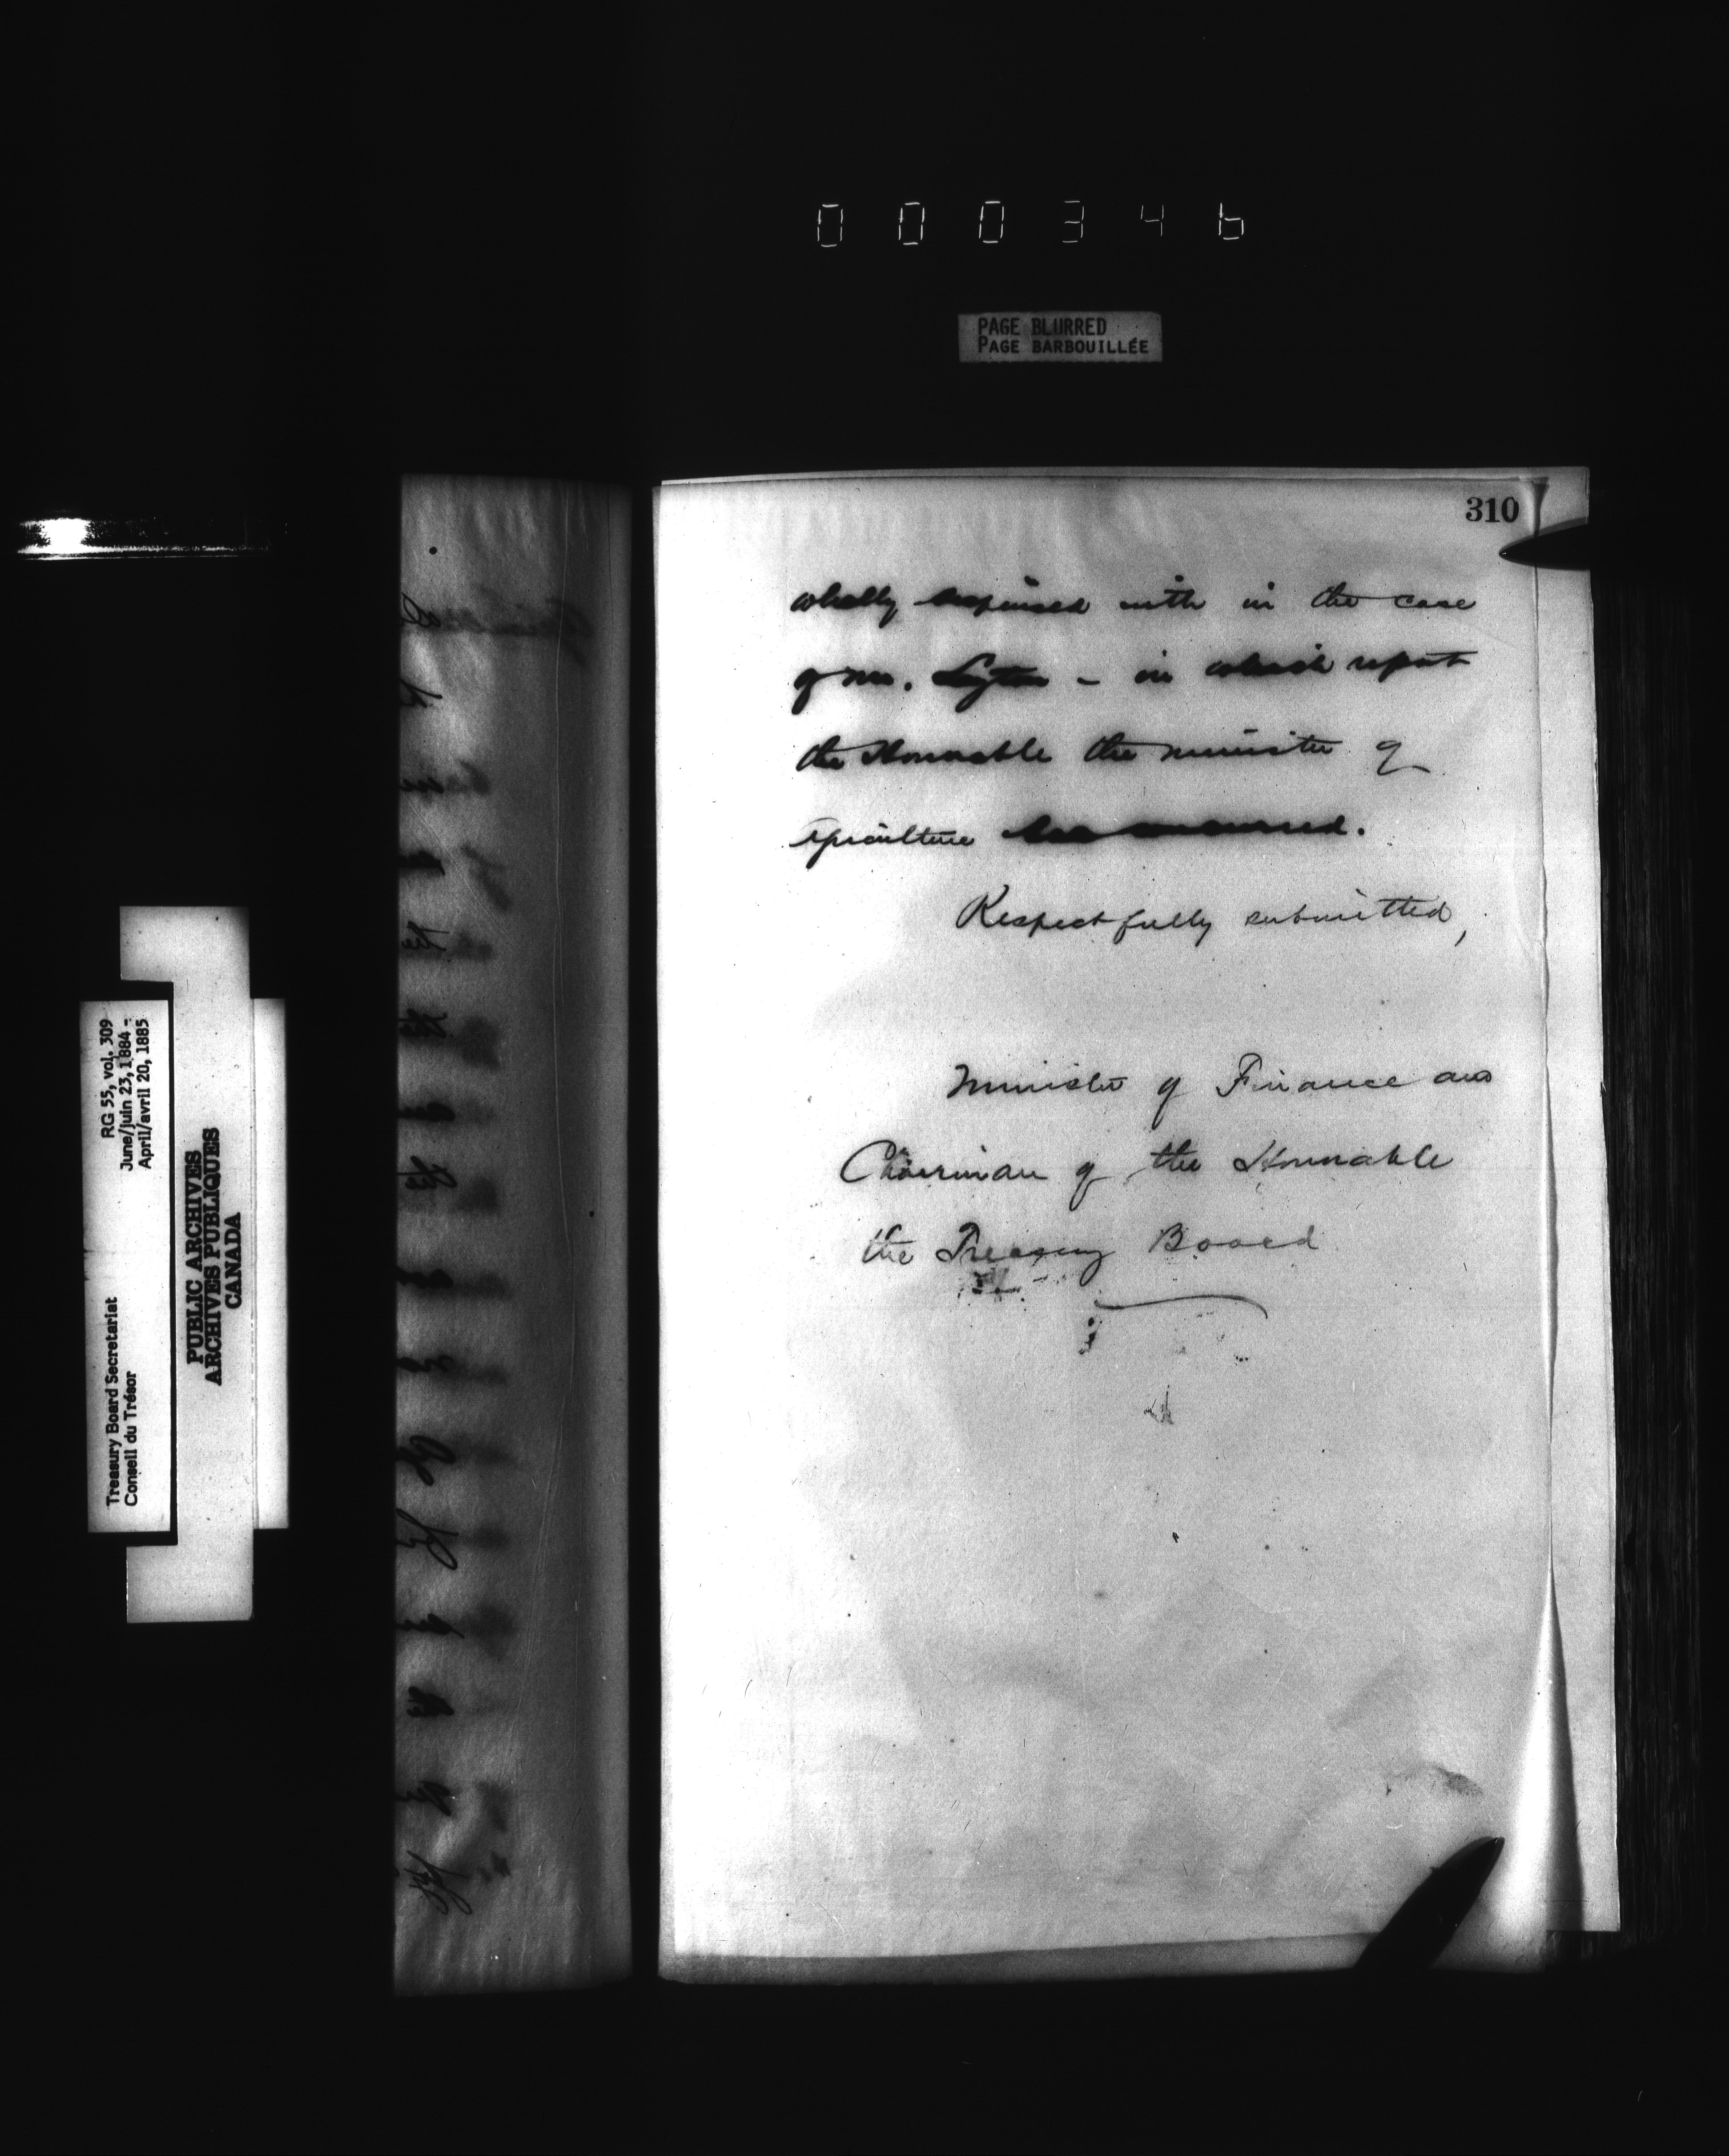 000346
PAGE BLURRED
PAGE BARBOUILLÉE
310
wholly dispensed with in the case
of Mr. Layton - in which report
the Honorable the Minister of
Agriculture has concurred.
Respectfully submitted,
Minister of Finance and
Chairman of the Honorable
the Treasury Board
RG 55, vol. 309
June/juin 23, 1884 -
April/avril 20, 1885
Treasury Board Secretariat
Conseil du Trésor
PUBLIC ARCHIVES
ARCHIVES PUBLIQUES
CANADA